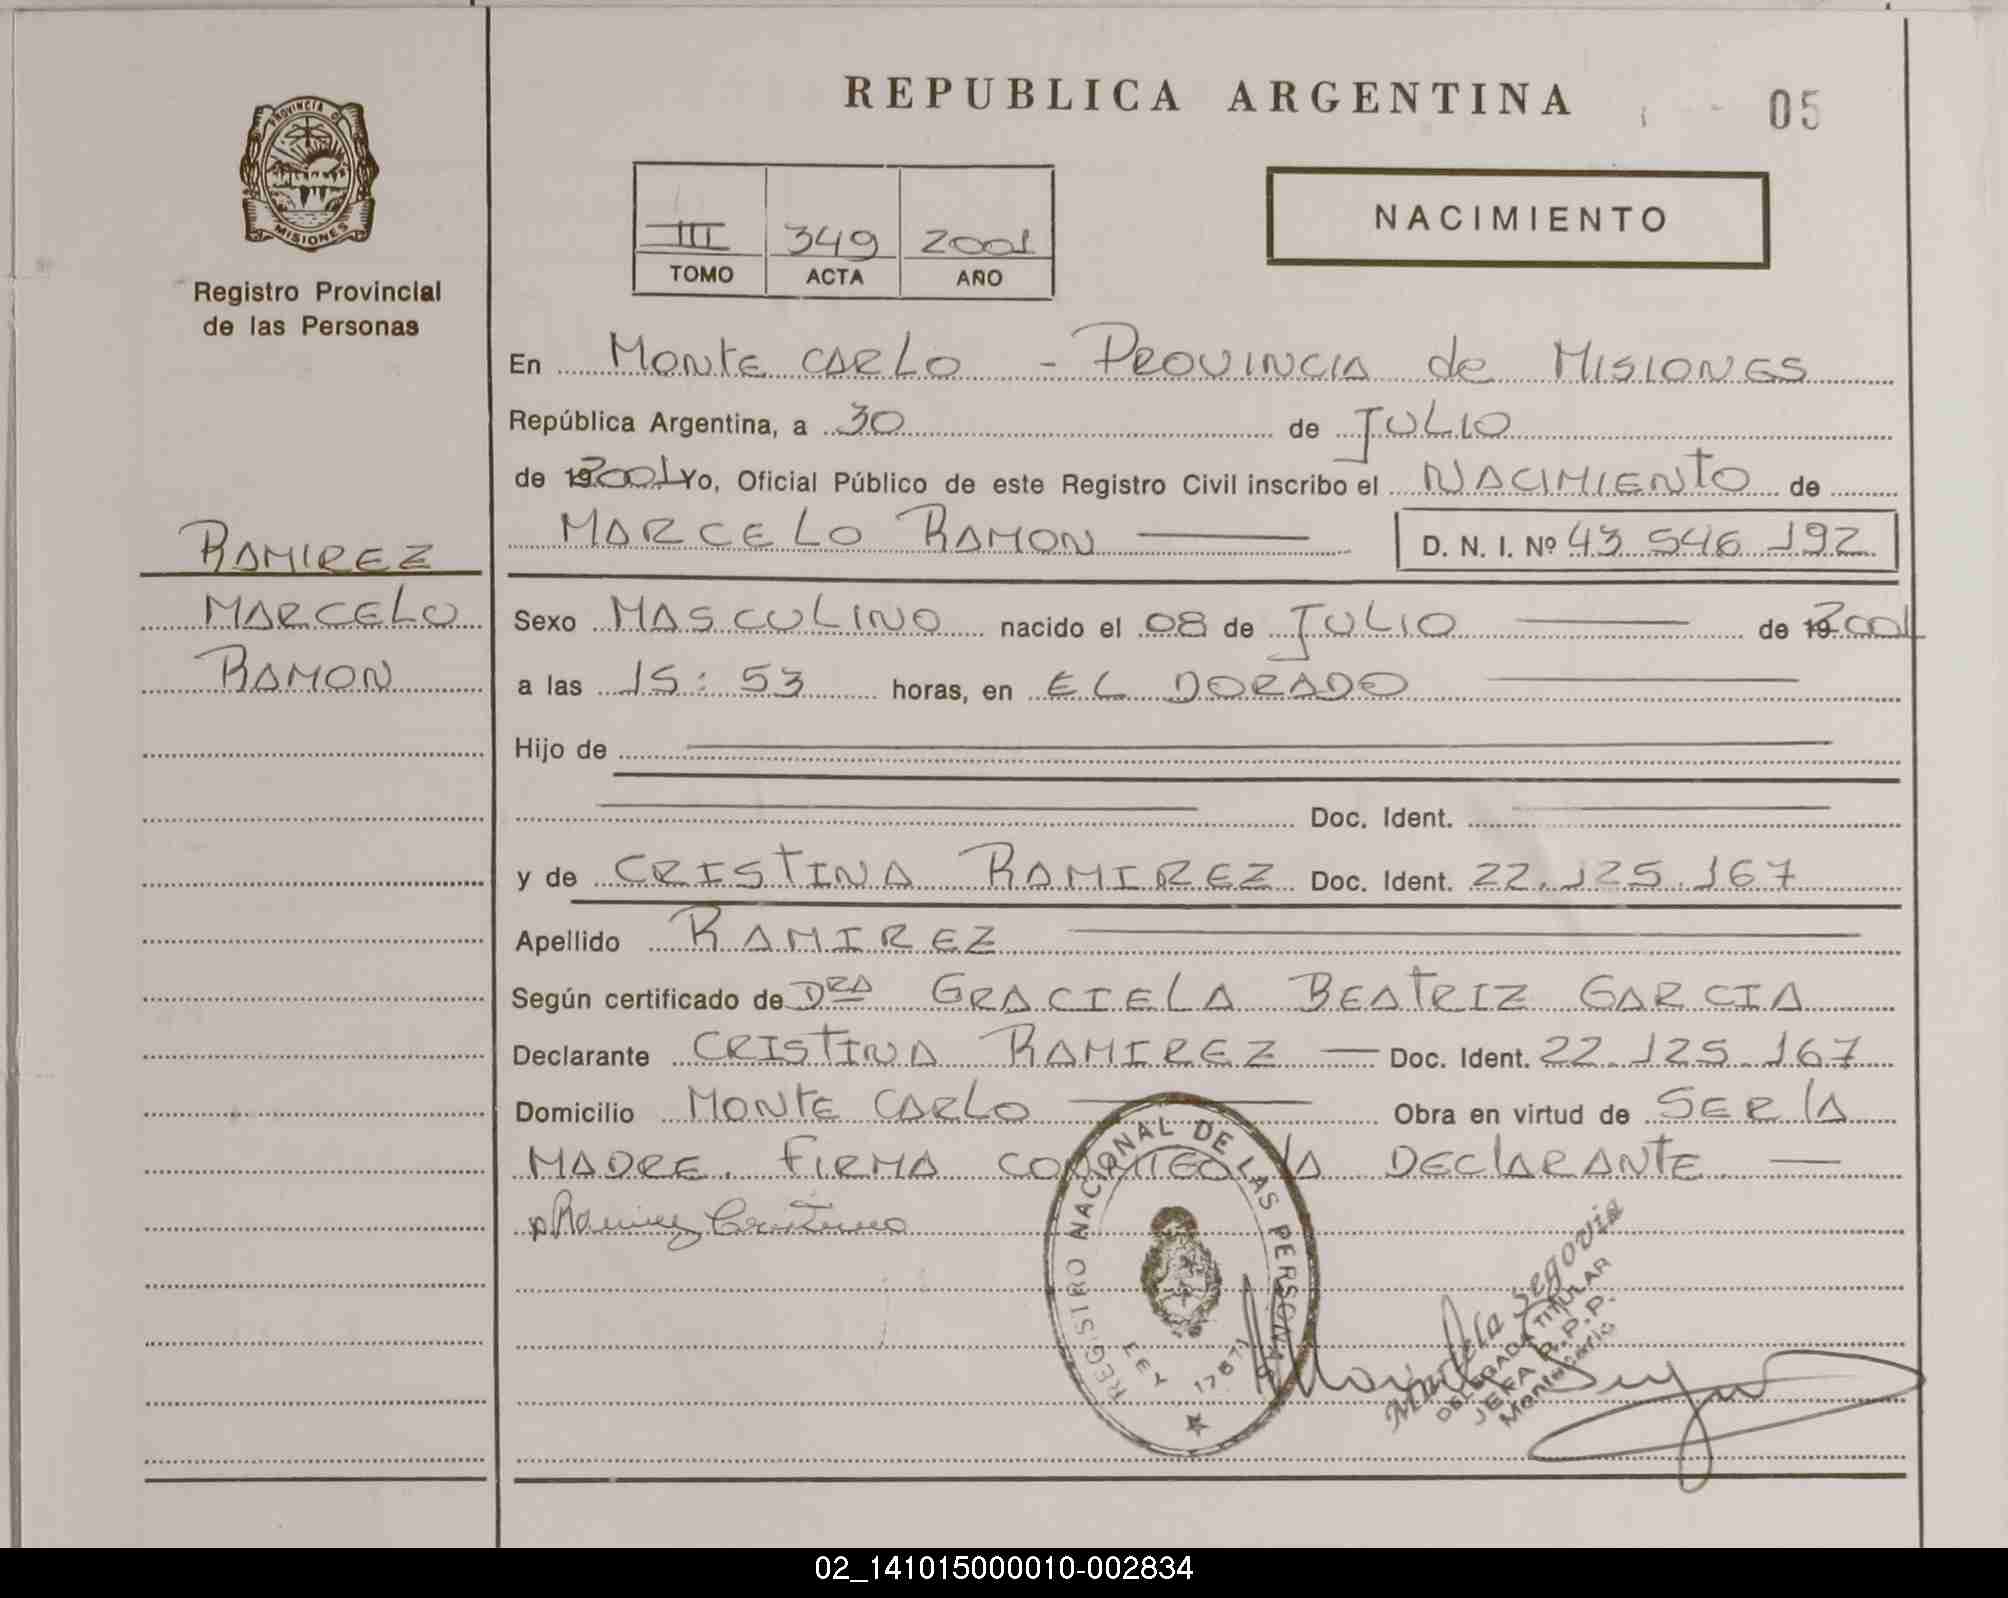 REPUBLICA ARGENTINA
05
PROVINCIA DE
MISIONES
Registro Provincial
de las Personas
III 349 2001
TOMO ACTA AÑO
NACIMIENTO
En MONTE CARLO - PROVINCIA de MISIONES
República Argentina, a 30 de JULIO
de 2001 Yo, Oficial Público de este Registro Civil inscribo el NACIMIENTO de
MARCELO RAMON D. N. I. Nº 43 546 192
RAMIREZ
MARCELO
RAMON
Sexo MASCULINO nacido el 08 de JULIO de 2001
a las 15:53 horas, en EL DORADO
Hijo de
Doc. Ident.
y de CRISTINA RAMIREZ Doc. Ident. 22.125.167
Apellido RAMIREZ
Según certificado de DRA GRACIELA BEATRIZ GARCIA
Declarante CRISTINA RAMIREZ Doc. Ident. 22.125.167
Domicilio MONTE CARLO Obra en virtud de SER la
MADRE. FIRMA CONMIGO la DEClARANTE
Ramirez Cristina
REGISTRO NACIONAL DE LAS PERSONAS
LEY 17671
Segovia
DELEGADA TITULAR
JEFA R.P.P.
Montecarlo
02_141015000010-002834